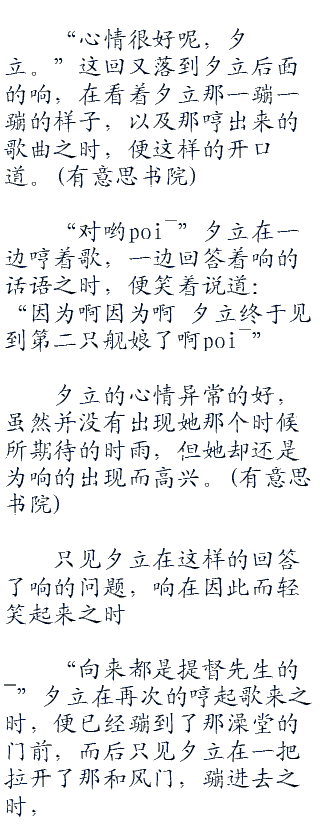 “心情很好呢，夕
立。”这回又落到夕立后面
的响，在看着夕立那一蹦一
蹦的样子，以及那哼出来的
歌曲之时，便这样的开口
道。(有意思书院)
“对哟poi¯”夕立在一
边哼着歌，一边回答着响的
话语之时，便笑着说道：
“因为啊因为啊 夕立终于见
到第二只舰娘了啊poi¯”
夕立的心情异常的好，
虽然并没有出现她那个时候
所期待的时雨，但她却还是
为响的出现而高兴。(有意思
书院)
只见夕立在这样的回答
了响的问题，响在因此而轻
笑起来之时
“向来都是提督先生的
¯”夕立在再次的哼起歌来之
时，便已经蹦到了那澡堂的
门前，而后只见夕立在一把
拉开了那和风门，蹦进去之
时，